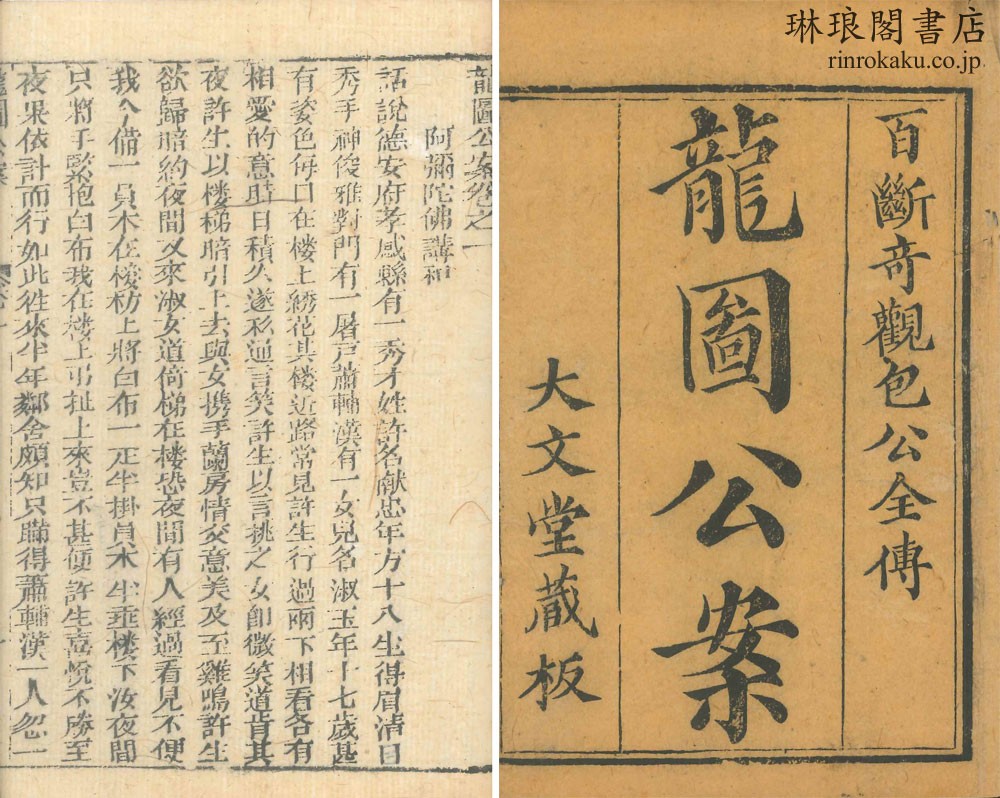 琳琅閣書店
rinrokaku.co.jp
百斷奇觀包公全傳
龍圖公案
大文堂蔵板
龍圖公案卷之一
阿彌陀佛講和
話說德安府孝感縣有一秀才姓許名献忠年方十八生得眉清目
秀丰神俊雅對門有一屠戸蕭輔漢有一女兒名淑玉年十七歲甚
有姿色每日在楼上綉花其楼近路常見許生行過兩下相看各有
相愛的意時日積久遂私通言笑許生以言桃之女即微笑道肯其
夜許生以楼梯暗引上去與女携手蘭房情交意美及至雞鳴許生
欲歸暗約夜間又來淑女道倚梯在楼恐夜間有人經過看見不便
我今備一員木在楼枋上將白布一疋半掛員木半垂楼下汝夜間
只將手緊抱白布我在楼上弔扯上來豈不甚便許生喜悅不勝至
夜果依計而行如此徃來半年鄰舍頗知只瞞得蕭輔漢一人忽一